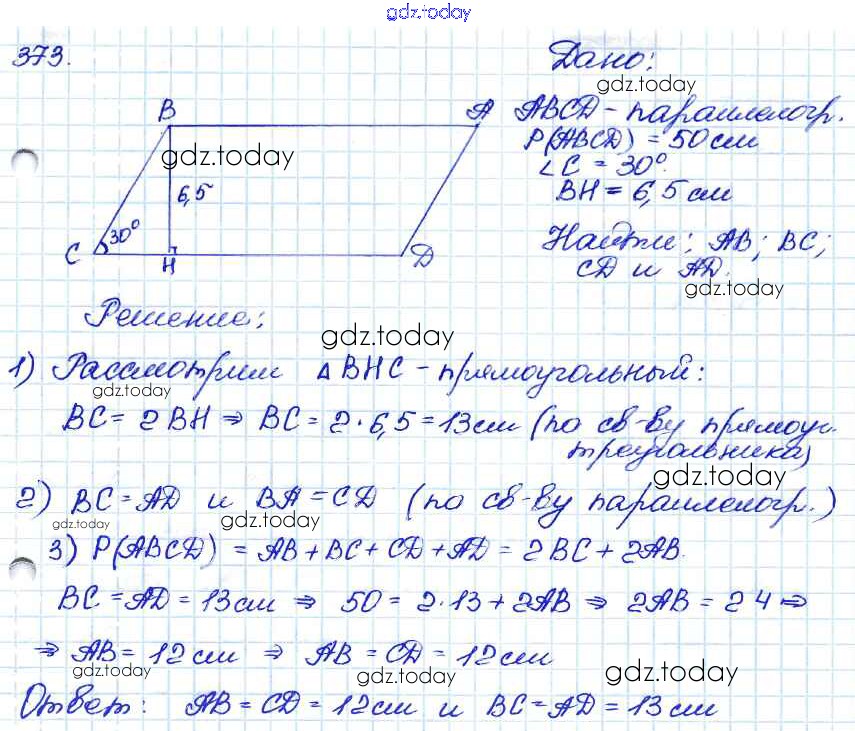 gdz.today
373.
Дано:
gdz.today
ABCD - параллелогр.
P(ABCD) = 50 см
∠C = 30°.
BH = 6,5 см
Найти: AB; BC;
CD и AD.
gdz.today
B A
gdz.today
6,5
30°
C H D
Решение:
gdz.today
1) Рассмотрим △BHC - прямоугольный:
gdz.today
BC = 2BH ⇒ BC = 2·6,5 = 13 см (по св-ву прямоуг.
треугольника)
gdz.today
2) BC = AD и BA = CD (по св-ву параллелогр.)
gdz.today gdz.today gdz.today
3) P(ABCD) = AB + BC + CD + AD = 2BC + 2AB.
BC = AD = 13 см ⇒ 50 = 2·13 + 2AB ⇒ 2AB = 24 ⇒
⇒ AB = 12 см ⇒ AB = CD = 12 см
gdz.today gdz.today gdz.today
Ответ: AB = CD = 12 см и BC = AD = 13 см